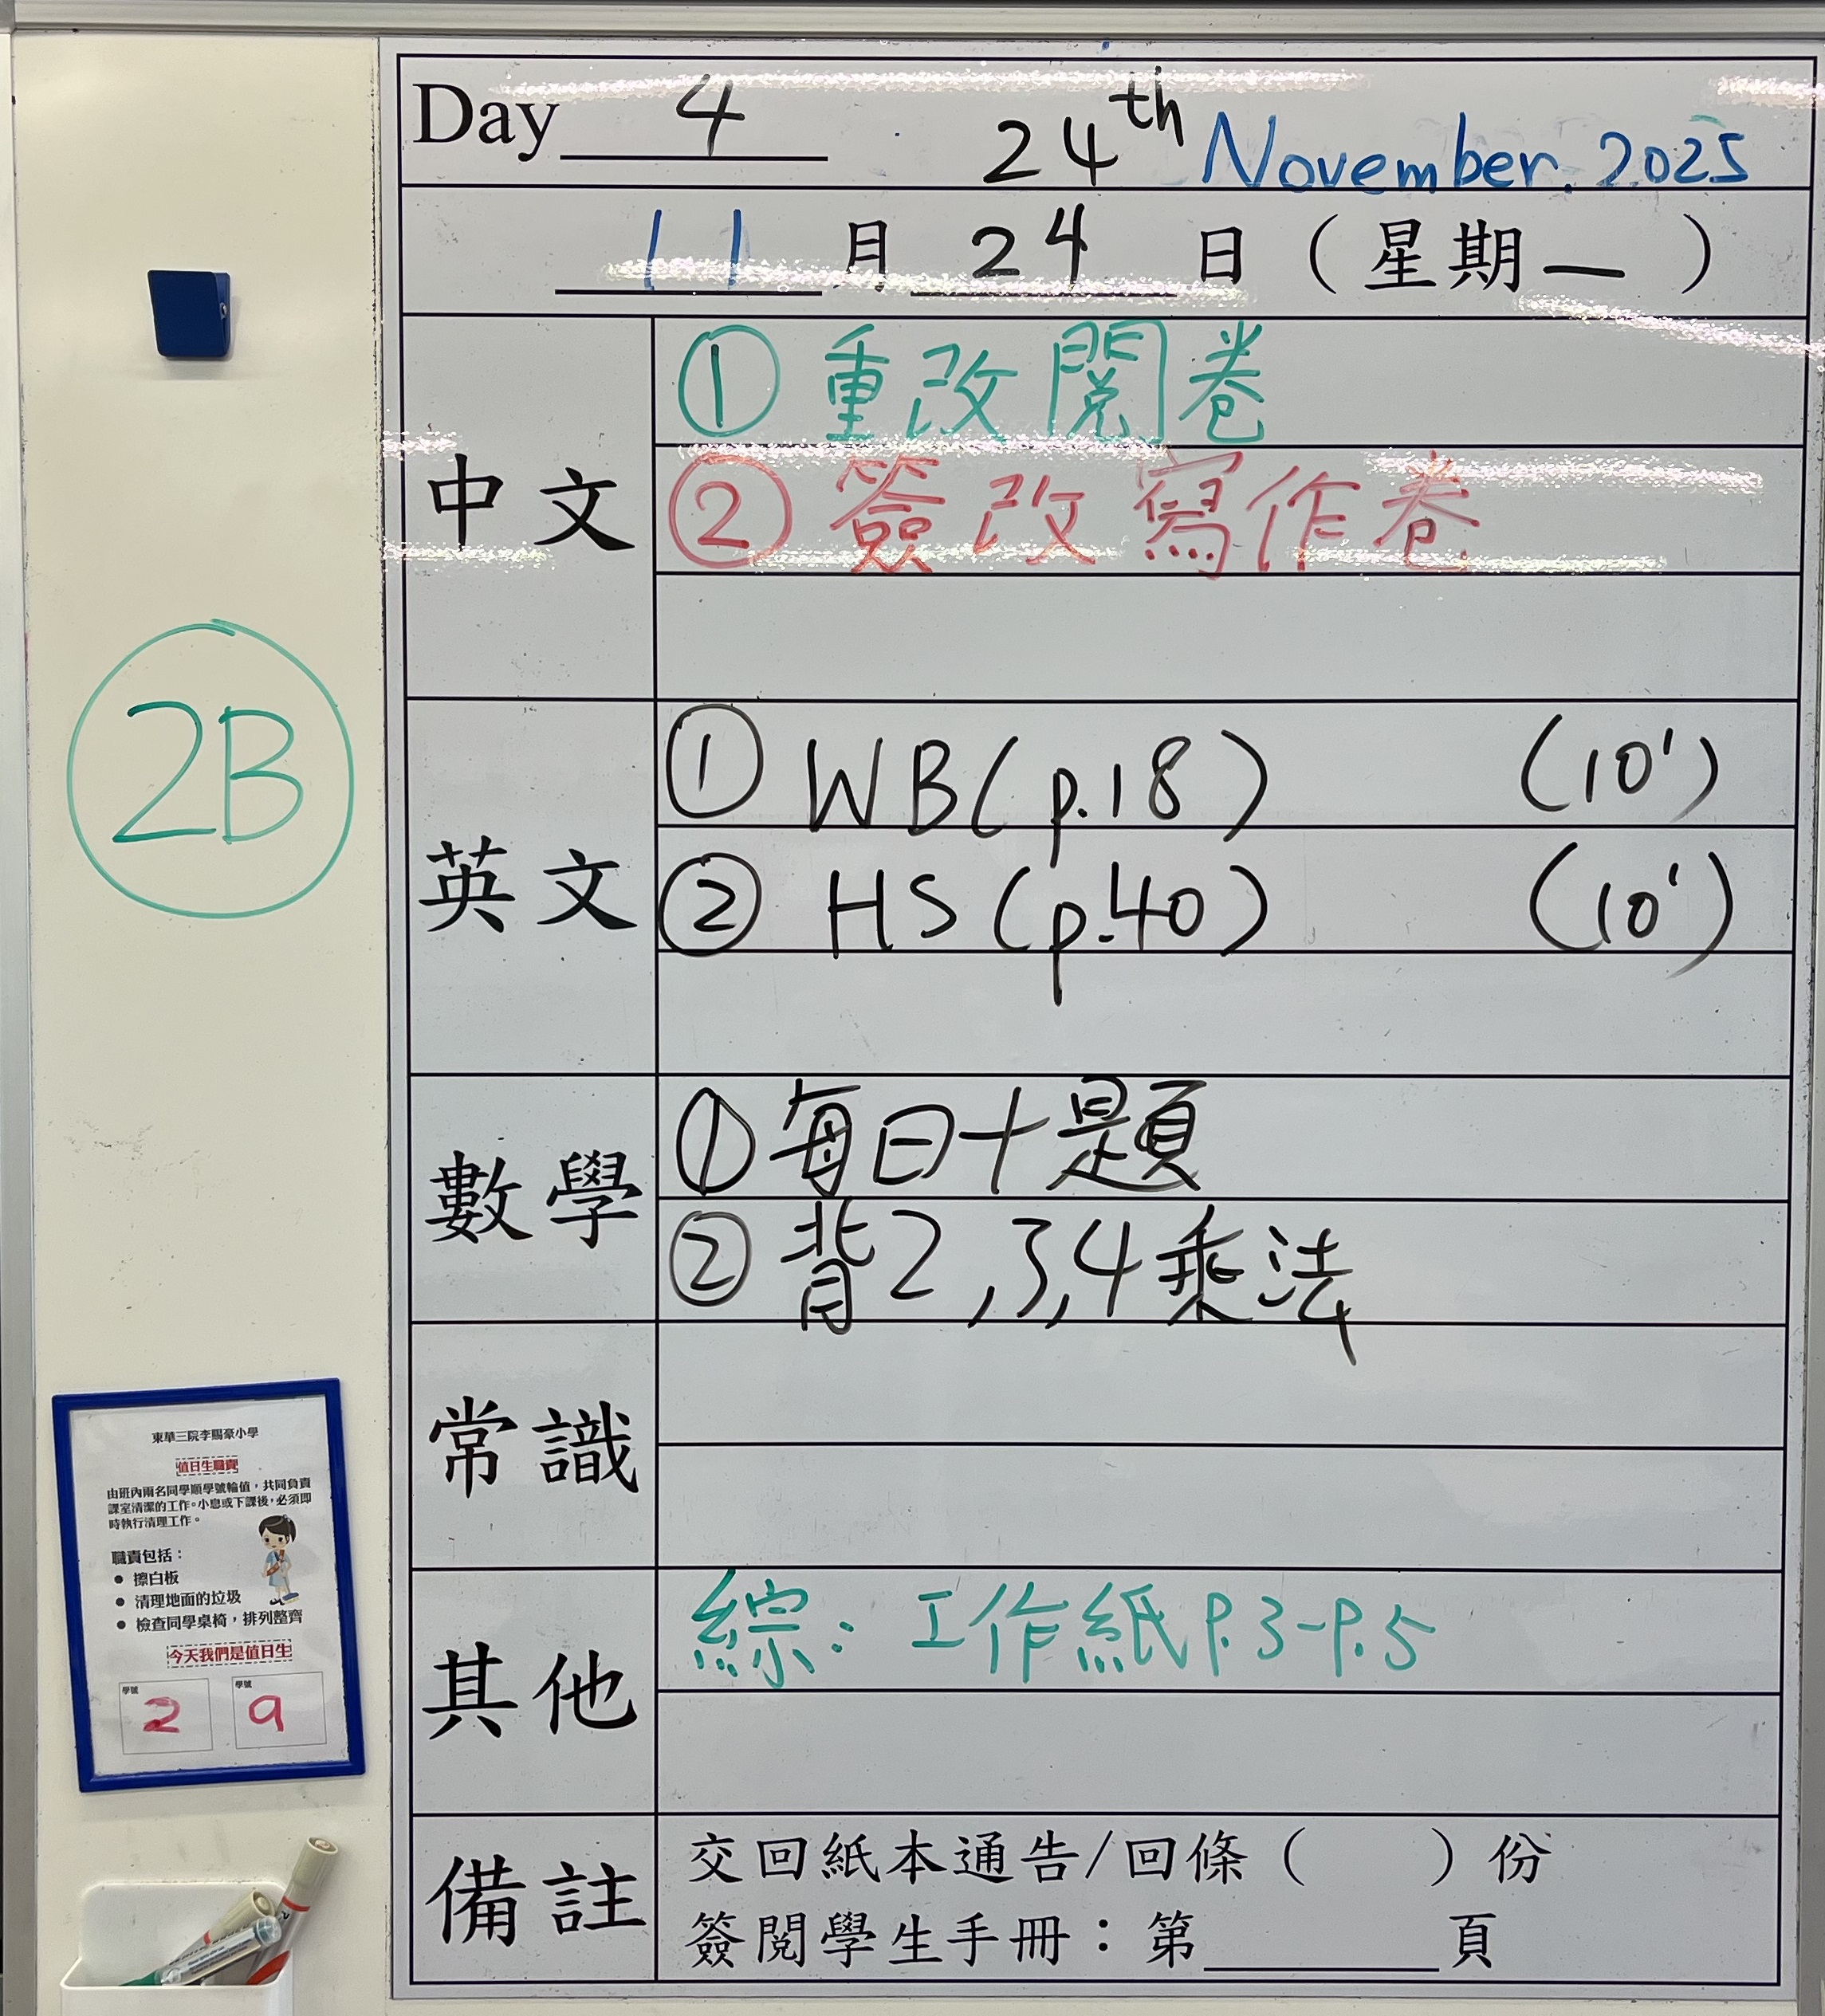 Day 4 24th November. 2025
11月24日（星期一）
中文
①重改閱卷
②簽改寫作卷
2B
英文
①WB(p.18) (10')
②HS(p.40) (10')
數學
①每日十題
②背2,3,4乘法
常識
其他
綜：工作紙P.3-P.5
備註
交回紙本通告/回條（ ）份
簽閱學生手冊：第____頁
東華三院李賜豪小學
值日生職責
由班內兩名同學順學號輪值，共同負責
課室清潔的工作。小息或下課後，必須即
時執行清理工作。
職責包括：
• 擦白板
• 清理地面的垃圾
• 檢查同學桌椅，排列整齊
今天我們是值日生
學號 學號
2 9